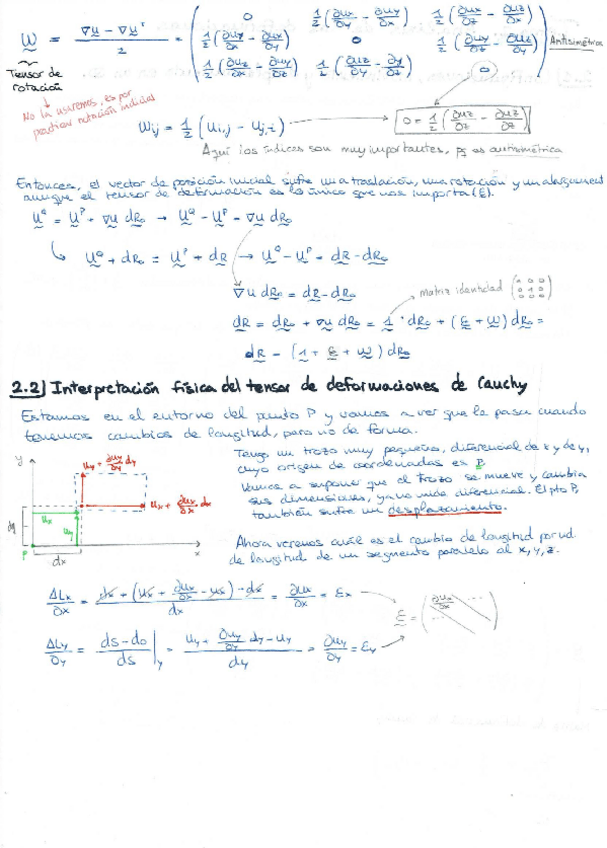 W = (∇u - ∇uᵀ)/2 = ( 0 1/2(∂ux/∂y - ∂uy/∂x) 1/2(∂ux/∂z - ∂uz/∂x)
1/2(∂uy/∂x - ∂ux/∂y) 0 1/2(∂uy/∂z - ∂uz/∂y) Antisimétrico
1/2(∂uz/∂x - ∂ux/∂z) 1/2(∂uz/∂y - ∂uy/∂z) 0 )
Tensor de
rotación
No la usaremos, es por
practicar notación indicial
Wij = 1/2 (ui,j - uj,i)
0 = 1/2 (∂uz/∂z - ∂uz/∂z)
Aquí los índices son muy importantes, pq es antisimétrica
Entonces, el vector de posición inicial sufre una traslación, una rotación y un alargamiento
aunque el tensor de deformación es lo único que nos importa (ε).
u^Q = u^P + ∇u dR₀ → u^Q - u^P = ∇u dR₀
u^Q + dR₀ = u^P + dR → u^Q - u^P = dR - dR₀
∇u dR₀ = dR - dR₀
matriz identidad (1 0 0 0 1 0 0 0 1)
dR = dR₀ + ∇u dR₀ = 1 · dR₀ + (ε + W) dR₀ =
dR = (1 + ε + W) dR₀
2.2) Interpretación física del tensor de deformaciones de Cauchy
Estamos en el entorno del punto P y vamos a ver que le pasa cuando
tenemos cambios de longitud, pero no de forma.
Tengo un trozo muy pequeño, diferencial de x y de y,
cuyo origen de coordenadas es P.
Vamos a suponer que el trozo se mueve y cambia
sus dimensiones, ya no mide diferencial. El pto P,
también sufre un desplazamiento.
y
uy + ∂uy/∂y dy
ux + ∂ux/∂x dx
ux
uy
dy
P
dx
x
Ahora veremos cuál es el cambio de longitud por ud.
de longitud de un segmento paralelo al x, y, z.
ΔLx/∂x = (dx + (ux + ∂ux/∂x - ux) - dx)/dx = ∂ux/∂x = εx
ε = ( ∂ux/∂x )
ΔLy/∂y = (ds - do)/ds |y = (uy + ∂uy/∂y dy - uy)/dy = ∂uy/∂y = εy